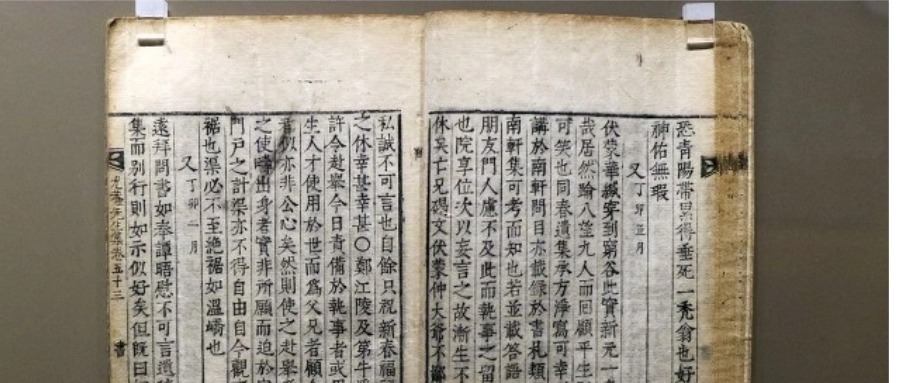 恐青陽帶累得垂死一禿翁也好
神佑無瑕
又丁卯正月
伏蒙華緘穿到窮谷此實新元一
哉居然踰八望九人而回顧平生
可笑也同春遺集承方淨寫可幸
講於南軒問目亦載錄於書札類
南軒集可考而知也若並載答語
朋友門人慮不及此而執事之留
也院享位次以妄言之故漸生不
休矣亡兄碣文伏蒙仲大爺不鄙
私誠不可言也自餘只祝新春福
之休幸甚幸甚〇鄭江陵及第牛
許令赴舉今日責備於執事者或
生人才使用於世而為父兄者顧
看似亦非公心矣然則使之赴舉
之使疇出身者實非所願而迫於
門戶之計渠亦不得自由自今觀
裾也渠必不至絶裾如溫嶠也
又丁卯二月
遠拜問書如奉譚晤慰不可言遺
集而別行則如示似好矣但既曰
卷五十三
書